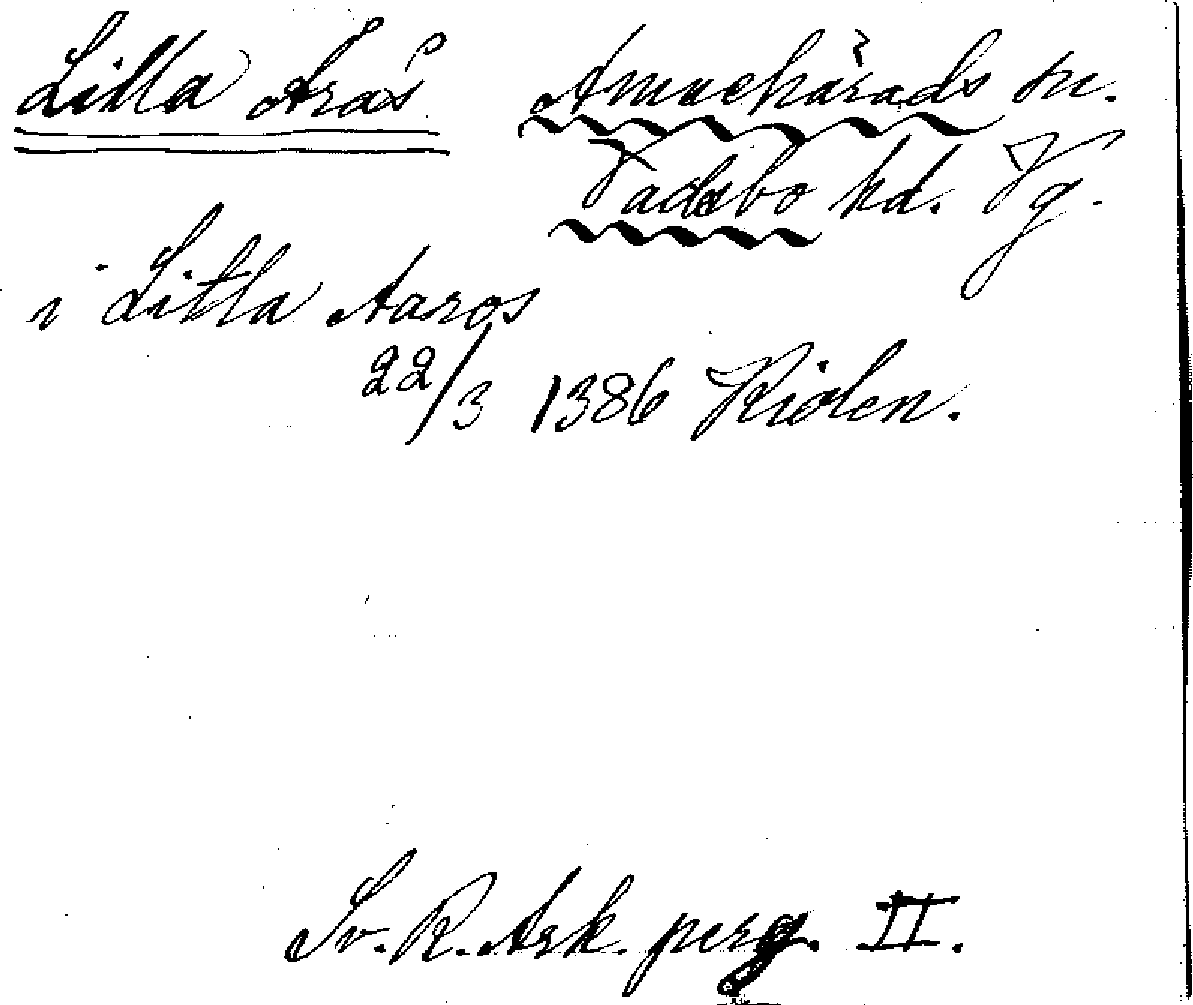 Lilla Årås Amnehärads sn.
Vadsbo hd. Vg.
i Litla Aaros
22/3 1386 Kiölen.
Sv. R. Ark. perg. II.